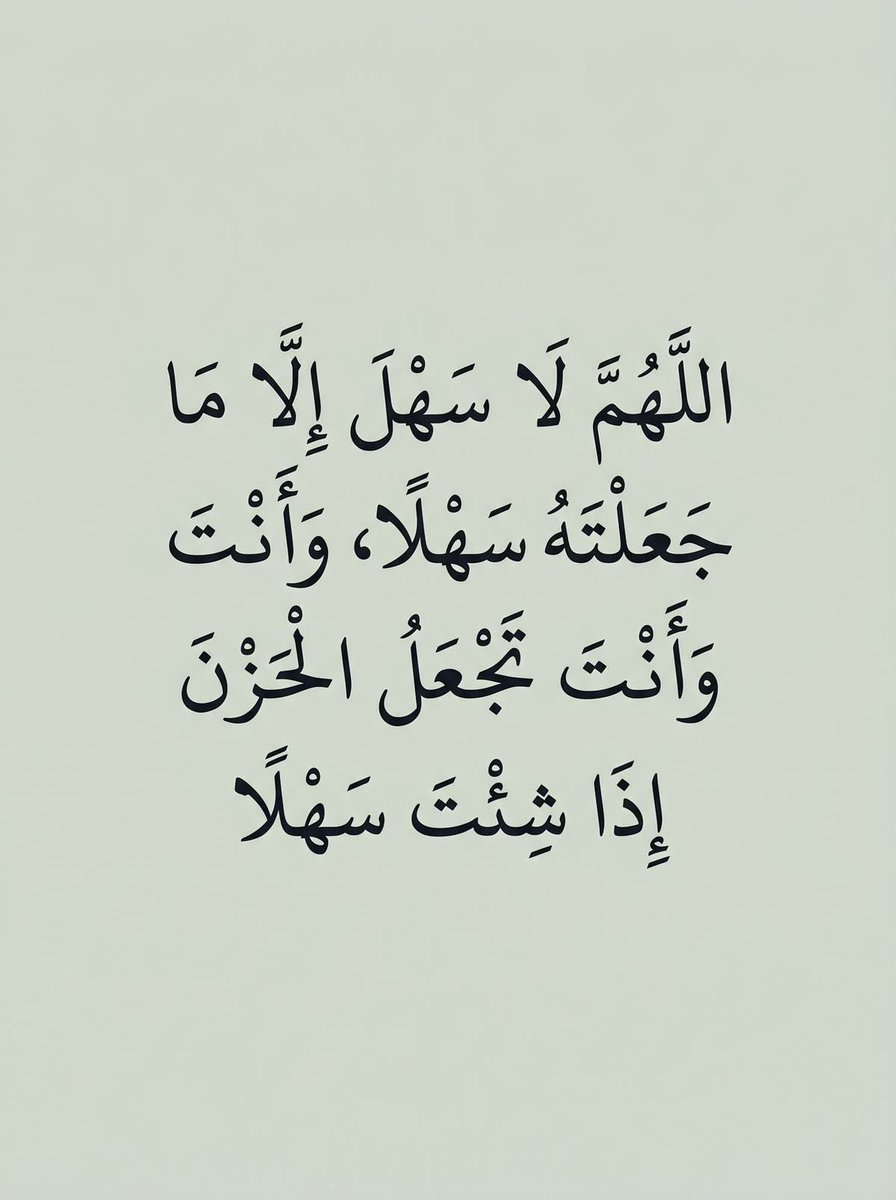 اللَّهُمَّ لَا سَهْلَ إِلَّا مَا
جَعَلْتَهُ سَهْلًا، وَأَنْتَ
وَأَنْتَ تَجْعَلُ الْحَزْنَ
إِذَا شِئْتَ سَهْلًا